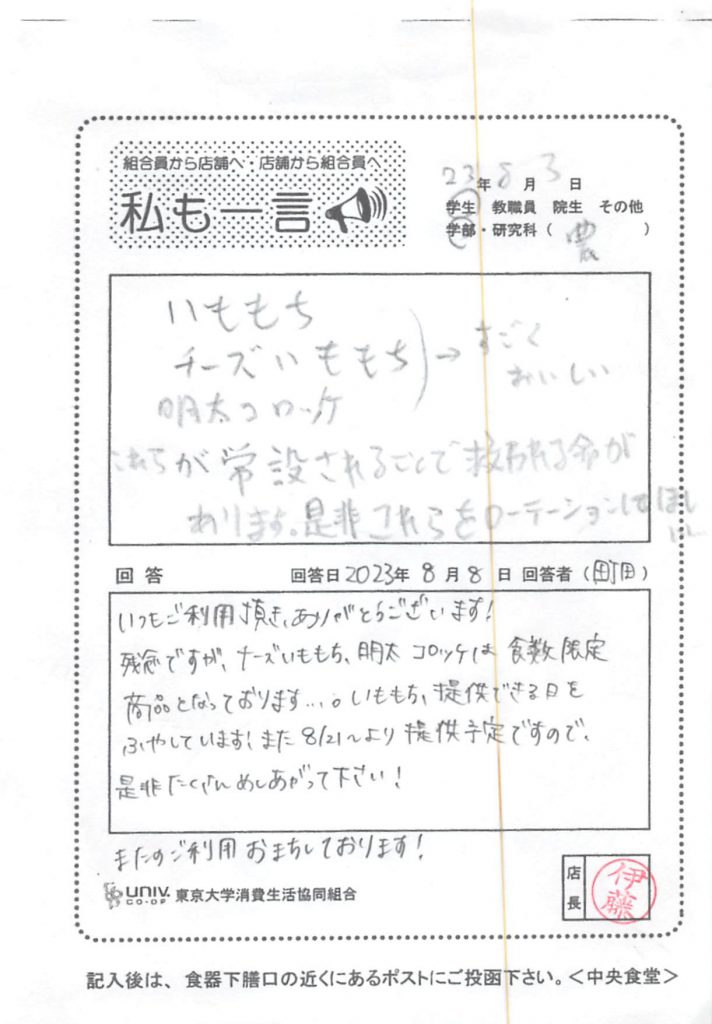 組合員から店舗へ・店舗から組合員へ
私も一言
23年8月3日
学生 教職員 院生 その他
学部・研究科（農）
いももち
チーズいももち → すごく
おいしい
明太コロッケ
これらが常設されることで救われる命が
あります。是非これらをローテーションしてほし
い
回答 回答日2023年8月8日 回答者（町田）
いつもご利用頂き、ありがとうございます！
残念ですが、チーズいももち、明太コロッケは食数限定
商品となっております...。いももち、提供できる日を
ふやしています！また8/21〜より提供予定ですので、
是非たくさんめしあがって下さい！
またのご利用おまちしております！
UNIV. CO-OP 東京大学消費生活協同組合
店長 伊藤
記入後は、食器下膳口の近くにあるポストにご投函下さい。＜中央食堂＞